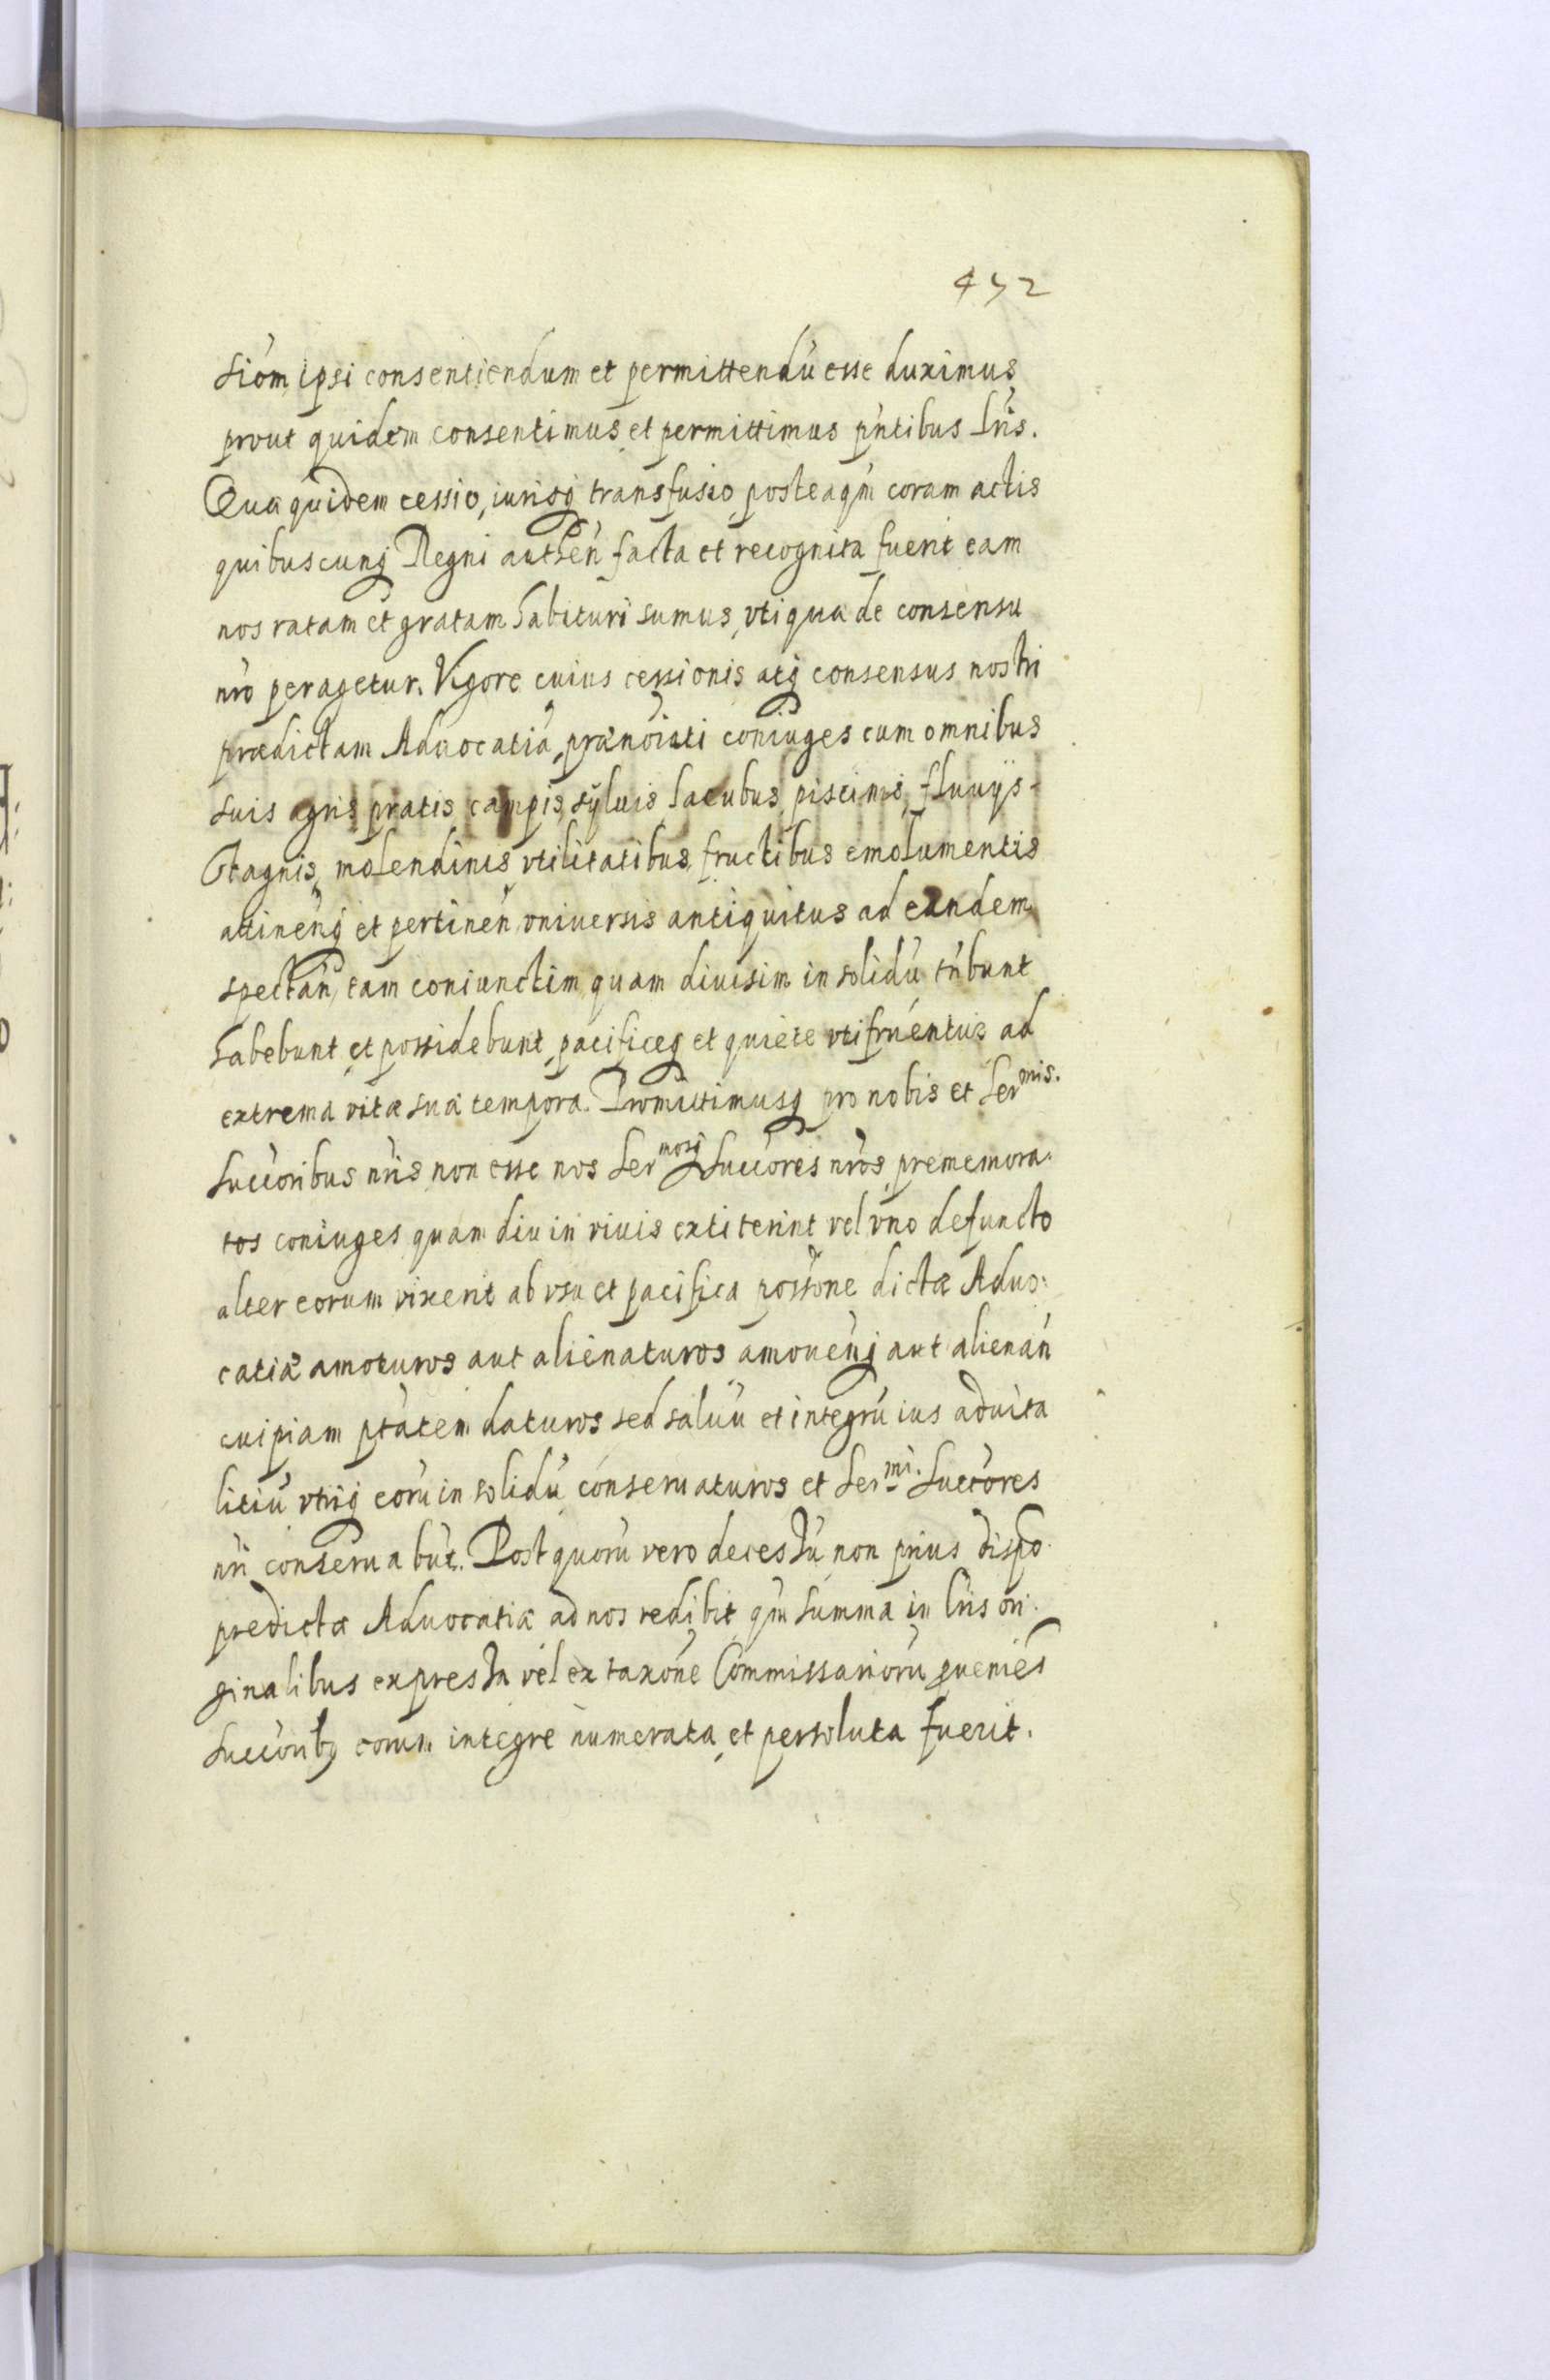 452
siom ipsi consentiendum et permittendũ esse duximus
prout quidem consentimus et permittimus pñtibus lris.
Quæ quidem cessio, iurisq transfusio posteaqm̃ coram actis
quibuscunq Regni authen̄ facta et recognita fuerit eam
nos ratam et gratam habituri sumus, vti quæ de consensu
nr̃o peragetur. Vigore cuius cessionis atq consensus nostri
prædictam Aduocatiã prænoĩati coniuges cum omnibus
suis agris pratis campis sÿluis lacubus piscinis fluuÿs
Stagnis, molendinis vtilitatibus fructibus emolumentis
attinenq et pertinen̄ vniuersis antiquitus ad eandem
spectan̄, tam coniunctim quam diuisim in solidũ tñbunt
habebunt et possidebunt pacificeq et quiete vtifruentur ad
extrema vitæ suæ tempora. Promittimusq pro nobis et Sermis.
succoribus nr̃is non esse nos Sermosq Succores nr̃os prememora:
tos coniuges quam diu in viuis extiterint vel vno defuncto
alter eorum vixerit ab vsu et pacifica possone dictæ Aduo:
catiæ amoturos aut alienaturos amouenq aut alienan̄
cuipiam ptãtem daturos sed saluũ et integrũ ius aduita
litiũ vtriq eorũ in solidũ conseruaturos et Sermi. Succores
nr̃i conseruabũt. Post quorũ vero decessũ non prius dispo
predictæ Aduocatiæ ad nos redibit qm̃ summa in lr̃is ori
ginalibus expressa vel ex taxone Commissariorũ proueniẽs
succoribq eorum integre numerata et persoluta fuerit.